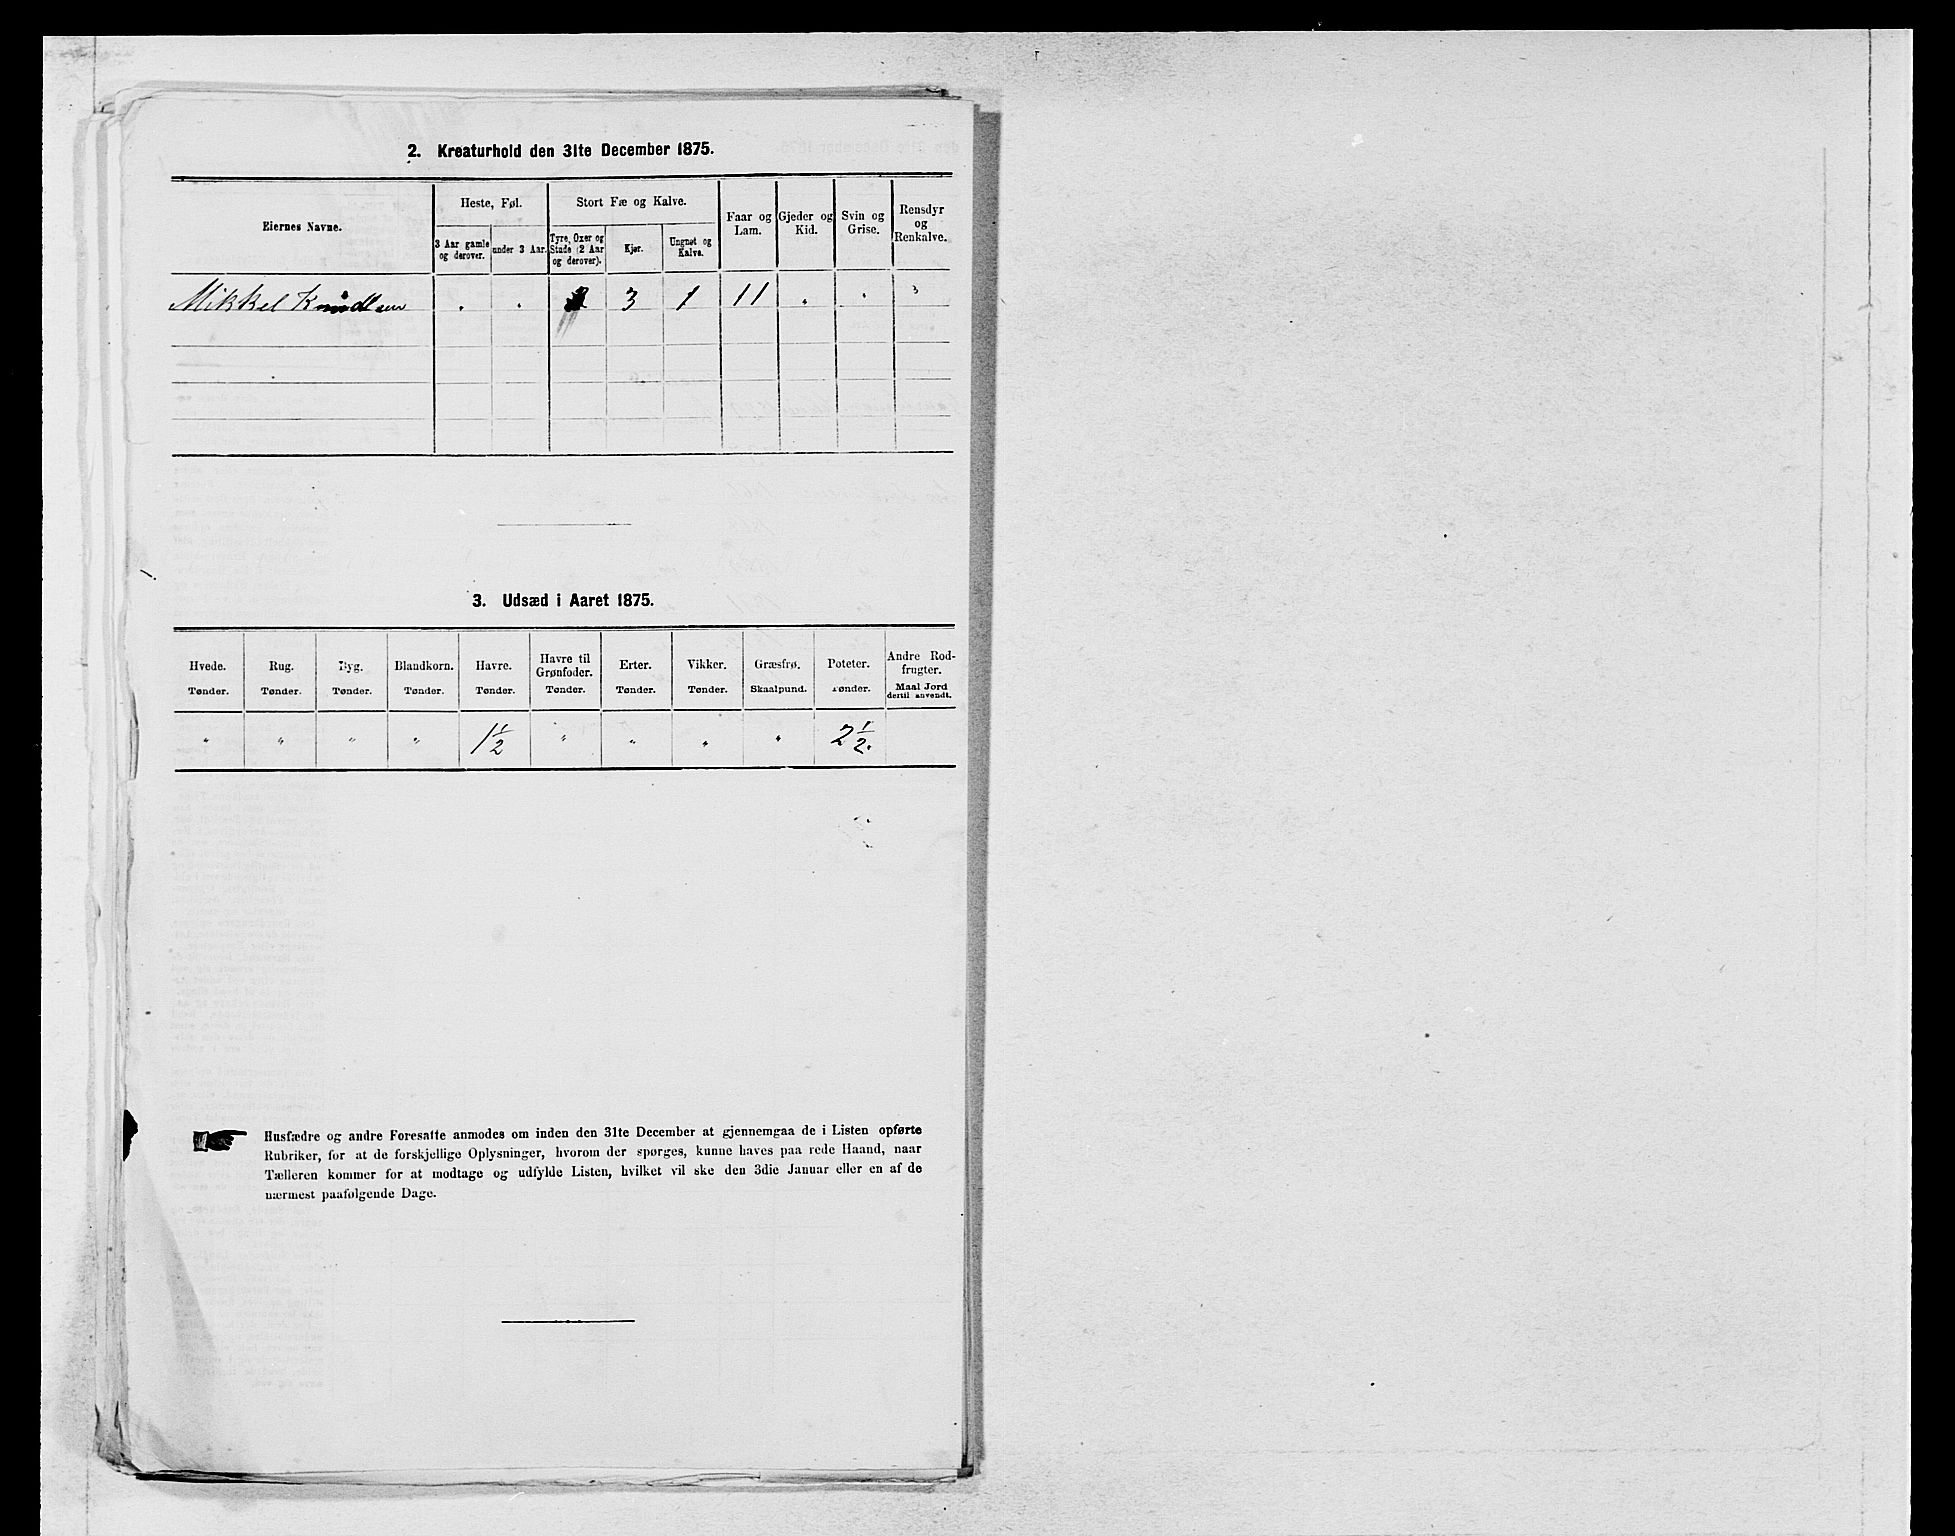 2. Kreaturhold den 31te December 1875.
Eiernes Navne. Heste, Føl. Stort Fæ og Kalve. Faar og Lam. Gjeder og Kid. Svin og Grise. Rensdyr og Renkalve.
3 Aar gamle og derover. under 3 Aar. Tyre, Oxer og Stude (2 Aar og derover). Kjør. Ungnøt og Kalve.
Mikkel Knudsen . . 3 1 11 . . "
3. Udsæd i Aaret 1875.
Hvede. Rug. Byg. Blandkorn. Havre. Havre til Grønfoder. Erter. Vikker. Græsfrø. Poteter. Andre Rodfrugter.
Tønder. Tønder. Tønder. Tønder. Tønder. Tønder. Tønder. Tønder. Skaalpund. Tønder. Maal Jord dertil anvendt.
" " " " 1 1/2 " " " " 2 1/2.
Husfædre og andre Foresatte anmodes om inden den 31te December at gjennemgaa de i Listen opførte
Rubriker, for at de forskjellige Oplysninger, hvorom der spørges, kunne haves paa rede Haand, naar
Tælleren kommer for at modtage og udfylde Listen, hvilket vil ske den 3die Januar eller en af de
nærmest paafølgende Dage.